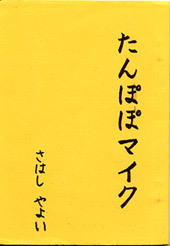 たんぽぽマイク
さはし やよい